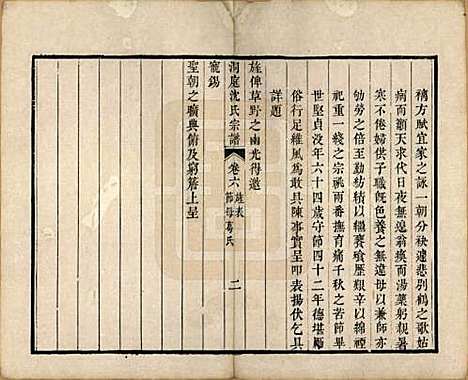 褵方賦宜家之詠一朝分袂遽悲別鶴之歌姑
病而籲天求代日夜無違翁瘓而湯藥躬親暑
寒不倦婦供子職旣色養之無違母以兼師亦
劬勞之倍至勤紡績以繼饔飧歷艱辛以綿禋
祀重一綫之宗祧兩番撫育痛千秋之苦節畢
世堅貞沒年六十四歲守節四十二年德堪勵
俗行足維風爲敢具陳事實呈叩表揚伏乞具
詳題
旌俾草野之幽光得邀
洞庭沈氏宗譜 卷六 旌表 節母葛氏 二
寵錫
聖朝之曠典俯及窮簷上呈